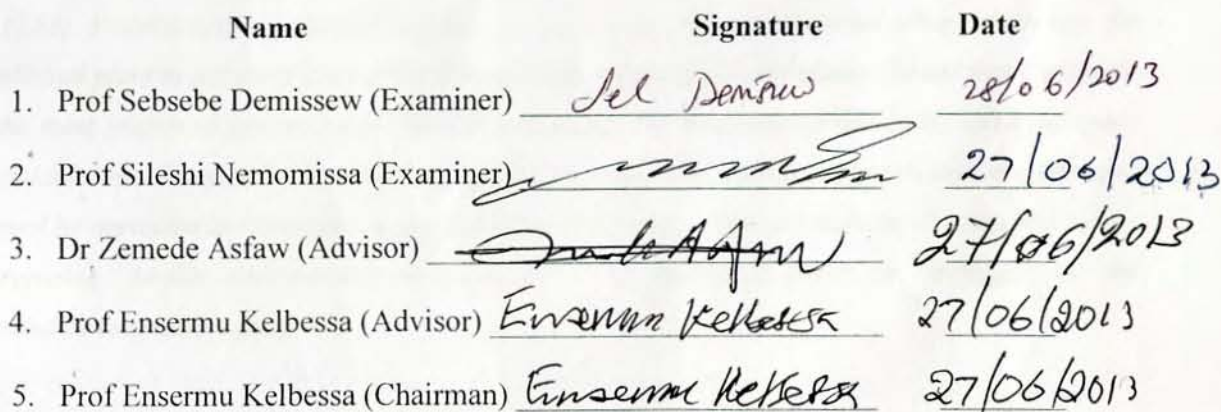 Name Signature Date
1. Prof Sebsebe Demissew (Examiner) Demissew 28/06/2013
2. Prof Sileshi Nemomissa (Examiner) 27/06/2013
3. Dr Zemede Asfaw (Advisor) 27/06/2013
4. Prof Ensermu Kelbessa (Advisor) Ensermu Kelbessa 27/06/2013
5. Prof Ensermu Kelbessa (Chairman) Ensermu Kelbessa 27/06/2013